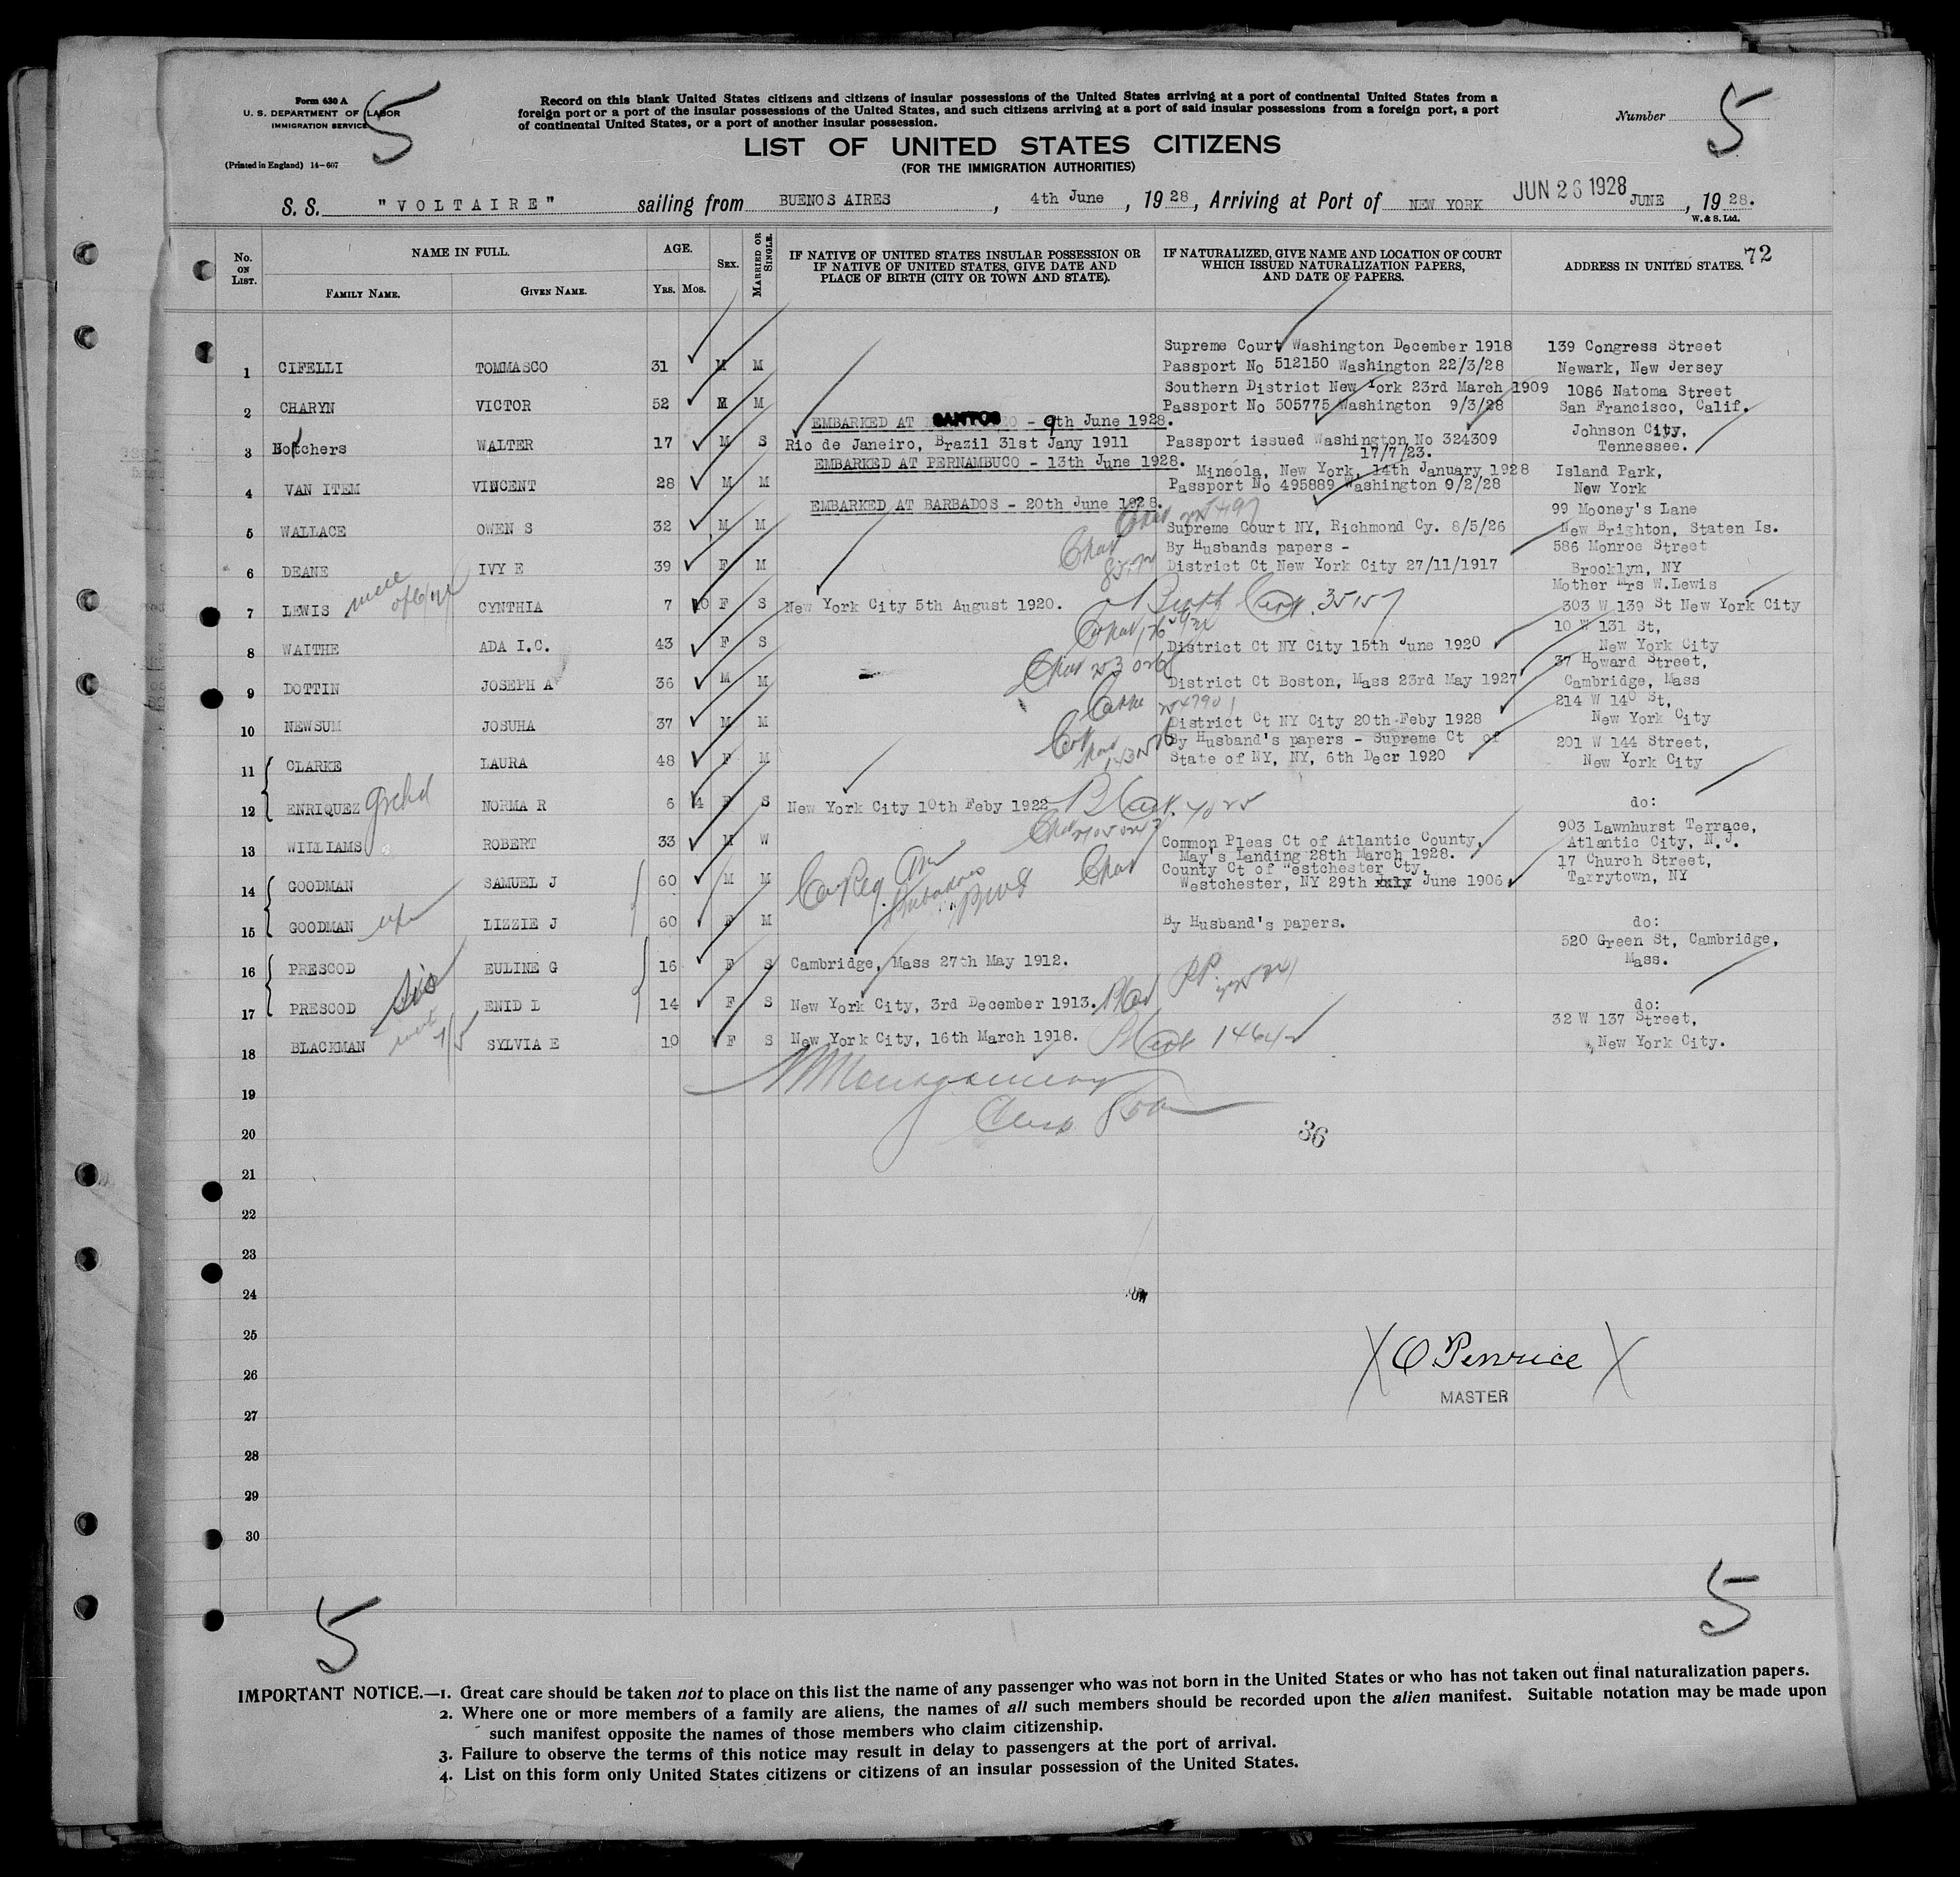 Form 630 A
U. S. DEPARTMENT OF LABOR
IMMIGRATION SERVICE
(Printed in England) 14-607
5
Record on this blank United States citizens and citizens of insular possessions of the United States arriving at a port of continental United States from a
foreign port or a port of the insular possessions of the United States, and such citizens arriving at a port of said insular possessions from a foreign port, a port
of continental United States, or a port of another insular possession.
Number 5
LIST OF UNITED STATES CITIZENS
(FOR THE IMMIGRATION AUTHORITIES)
S. S. "VOLTAIRE" sailing from BUENOS AIRES, 4th June, 1928, Arriving at Port of NEW YORK JUN 26 1928 JUNE, 1928.
W. & S. Ltd.
No. ON LIST. NAME IN FULL. AGE. SEX. MARRIED OR SINGLE. IF NATIVE OF UNITED STATES INSULAR POSSESSION OR IF NATIVE OF UNITED STATES, GIVE DATE AND PLACE OF BIRTH (CITY OR TOWN AND STATE). IF NATURALIZED, GIVE NAME AND LOCATION OF COURT WHICH ISSUED NATURALIZATION PAPERS, AND DATE OF PAPERS. ADDRESS IN UNITED STATES. 72
FAMILY NAME. GIVEN NAME. YRS. MOS.
Supreme Court Washington December 1918 139 Congress Street
1 CIFELLI TOMMASCO 31 M M Passport No 512150 Washington 22/3/28 Newark, New Jersey
Southern District New York 23rd March 1909 1086 Natoma Street
2 CHARYN VICTOR 52 M M Passport No 505775 Washington 9/3/28 San Francisco, Calif.
EMBARKED AT SANTOS - 9th June 1928. Johnson City,
3 Botchers WALTER 17 M S Rio de Janeiro, Brazil 31st Jany 1911 Passport issued Washington No 324309 Tennessee.
17/7/23.
EMBARKED AT PERNAMBUCO - 13th June 1928. Mineola, New York, 14th January 1928 Island Park,
4 VAN ITEM VINCENT 28 M M Passport No 495889 Washington 9/2/28 New York
EMBARKED AT BARBADOS - 20th June 1928. 99 Mooney's Lane
5 WALLACE OWEN S 32 M M Supreme Court NY, Richmond Cy. 8/5/26 New Brighton, Staten Is.
By Husbands papers - 586 Monroe Street
6 DEANE IVY E 39 F M District Ct New York City 27/11/1917 Brooklyn, NY
Mother Mrs W.Lewis
7 LEWIS niece CYNTHIA 7 10 F S New York City 5th August 1920. Birth Cert. 35157 303 W 139 St New York City
10 W 131 St,
8 WAITHE ADA I.C. 43 F S District Ct NY City 15th June 1920 New York City
37 Howard Street,
9 DOTTIN JOSEPH A 36 M M District Ct Boston, Mass 23rd May 1927 Cambridge, Mass
214 W 140 St,
10 NEWSUM JOSUHA 37 M M District Ct NY City 20th Feby 1928 New York City
By Husband's papers - Supreme Ct of 201 W 144 Street,
11 CLARKE LAURA 48 F M State of NY, NY, 6th Decr 1920 New York City
12 ENRIQUEZ NORMA R 6 4 F S New York City 10th Feby 1922 do:
903 Lawnhurst Terrace,
13 WILLIAMS ROBERT 33 M W Common Pleas Ct of Atlantic County, Atlantic City, N.J.
May's Landing 28th March 1928.
County Ct of Westchester Cty, 17 Church Street,
14 GOODMAN SAMUEL J 60 M M Westchester, NY 29th July June 1906 Tarrytown, NY
15 GOODMAN LIZZIE J 60 F M By Husband's papers. do:
520 Green St, Cambridge,
16 PRESCOD EULINE G 16 F S Cambridge, Mass 27th May 1912. Mass.
17 PRESCOD sis ENID L 14 F S New York City, 3rd December 1913. do:
32 W 137 Street,
18 BLACKMAN SYLVIA E 10 F S New York City, 16th March 1918. New York City.
19
Montgomery
20
36
21
22
23
24
25
O Penrice
26
MASTER
27
28
29
30
5
5
IMPORTANT NOTICE.—1. Great care should be taken not to place on this list the name of any passenger who was not born in the United States or who has not taken out final naturalization papers.
2. Where one or more members of a family are aliens, the names of all such members should be recorded upon the alien manifest. Suitable notation may be made upon
such manifest opposite the names of those members who claim citizenship.
3. Failure to observe the terms of this notice may result in delay to passengers at the port of arrival.
4. List on this form only United States citizens or citizens of an insular possession of the United States.